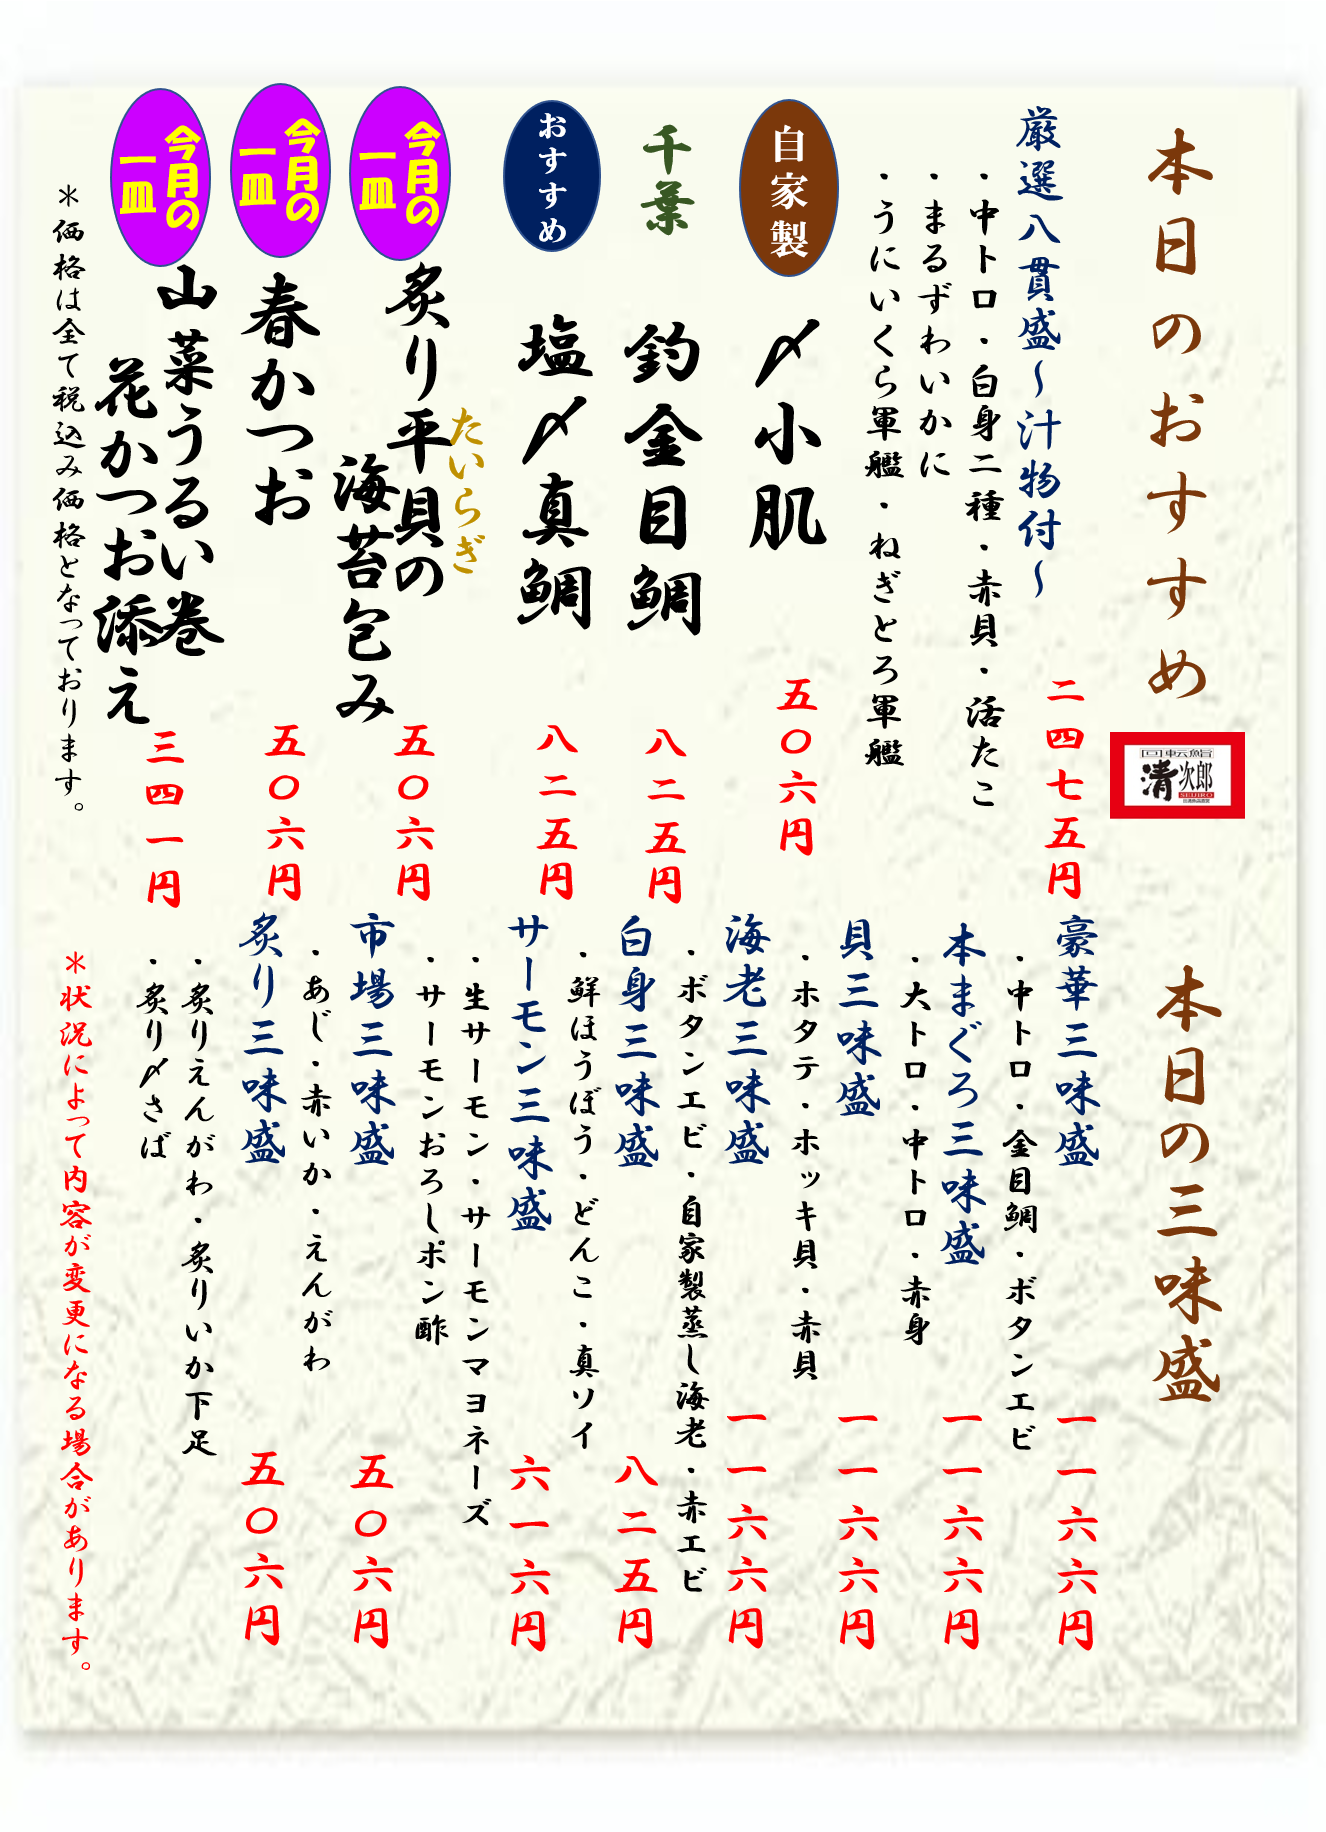 本日のおすすめ
回転鮨
清次郎
SEIJIRO
厳選八貫盛～汁物付～
二四七五円
・中トロ・白身二種・赤貝・活たこ
・まるずわいかに
・うにいくら軍艦・ねぎとろ軍艦
自家製
〆小肌
五〇六円
千葉
釣金目鯛
八二五円
おすすめ
塩〆真鯛
八二五円
今月の
一皿
たいらぎ
炙り平貝の
海苔包み
五〇六円
今月の
一皿
春かつお
五〇六円
今月の
一皿
山菜うるい巻
花かつお添え
三四一円
＊価格は全て税込み価格となっております。
本日の三味盛
豪華三味盛
一一六六円
・中トロ・金目鯛・ボタンエビ
本まぐろ三味盛
一一六六円
・大トロ・中トロ・赤身
貝三味盛
一一六六円
・ホタテ・ホッキ貝・赤貝
海老三味盛
一一六六円
・ボタンエビ・自家製蒸し海老・赤エビ
白身三味盛
八二五円
・鮮ほうぼう・どんこ・真ソイ
サーモン三味盛
六一六円
・生サーモン・サーモンマヨネーズ
・サーモンおろしポン酢
市場三味盛
五〇六円
・あじ・赤いか・えんがわ
炙り三味盛
五〇六円
・炙りえんがわ・炙りいか下足
・炙り〆さば
＊状況によって内容が変更になる場合があります。